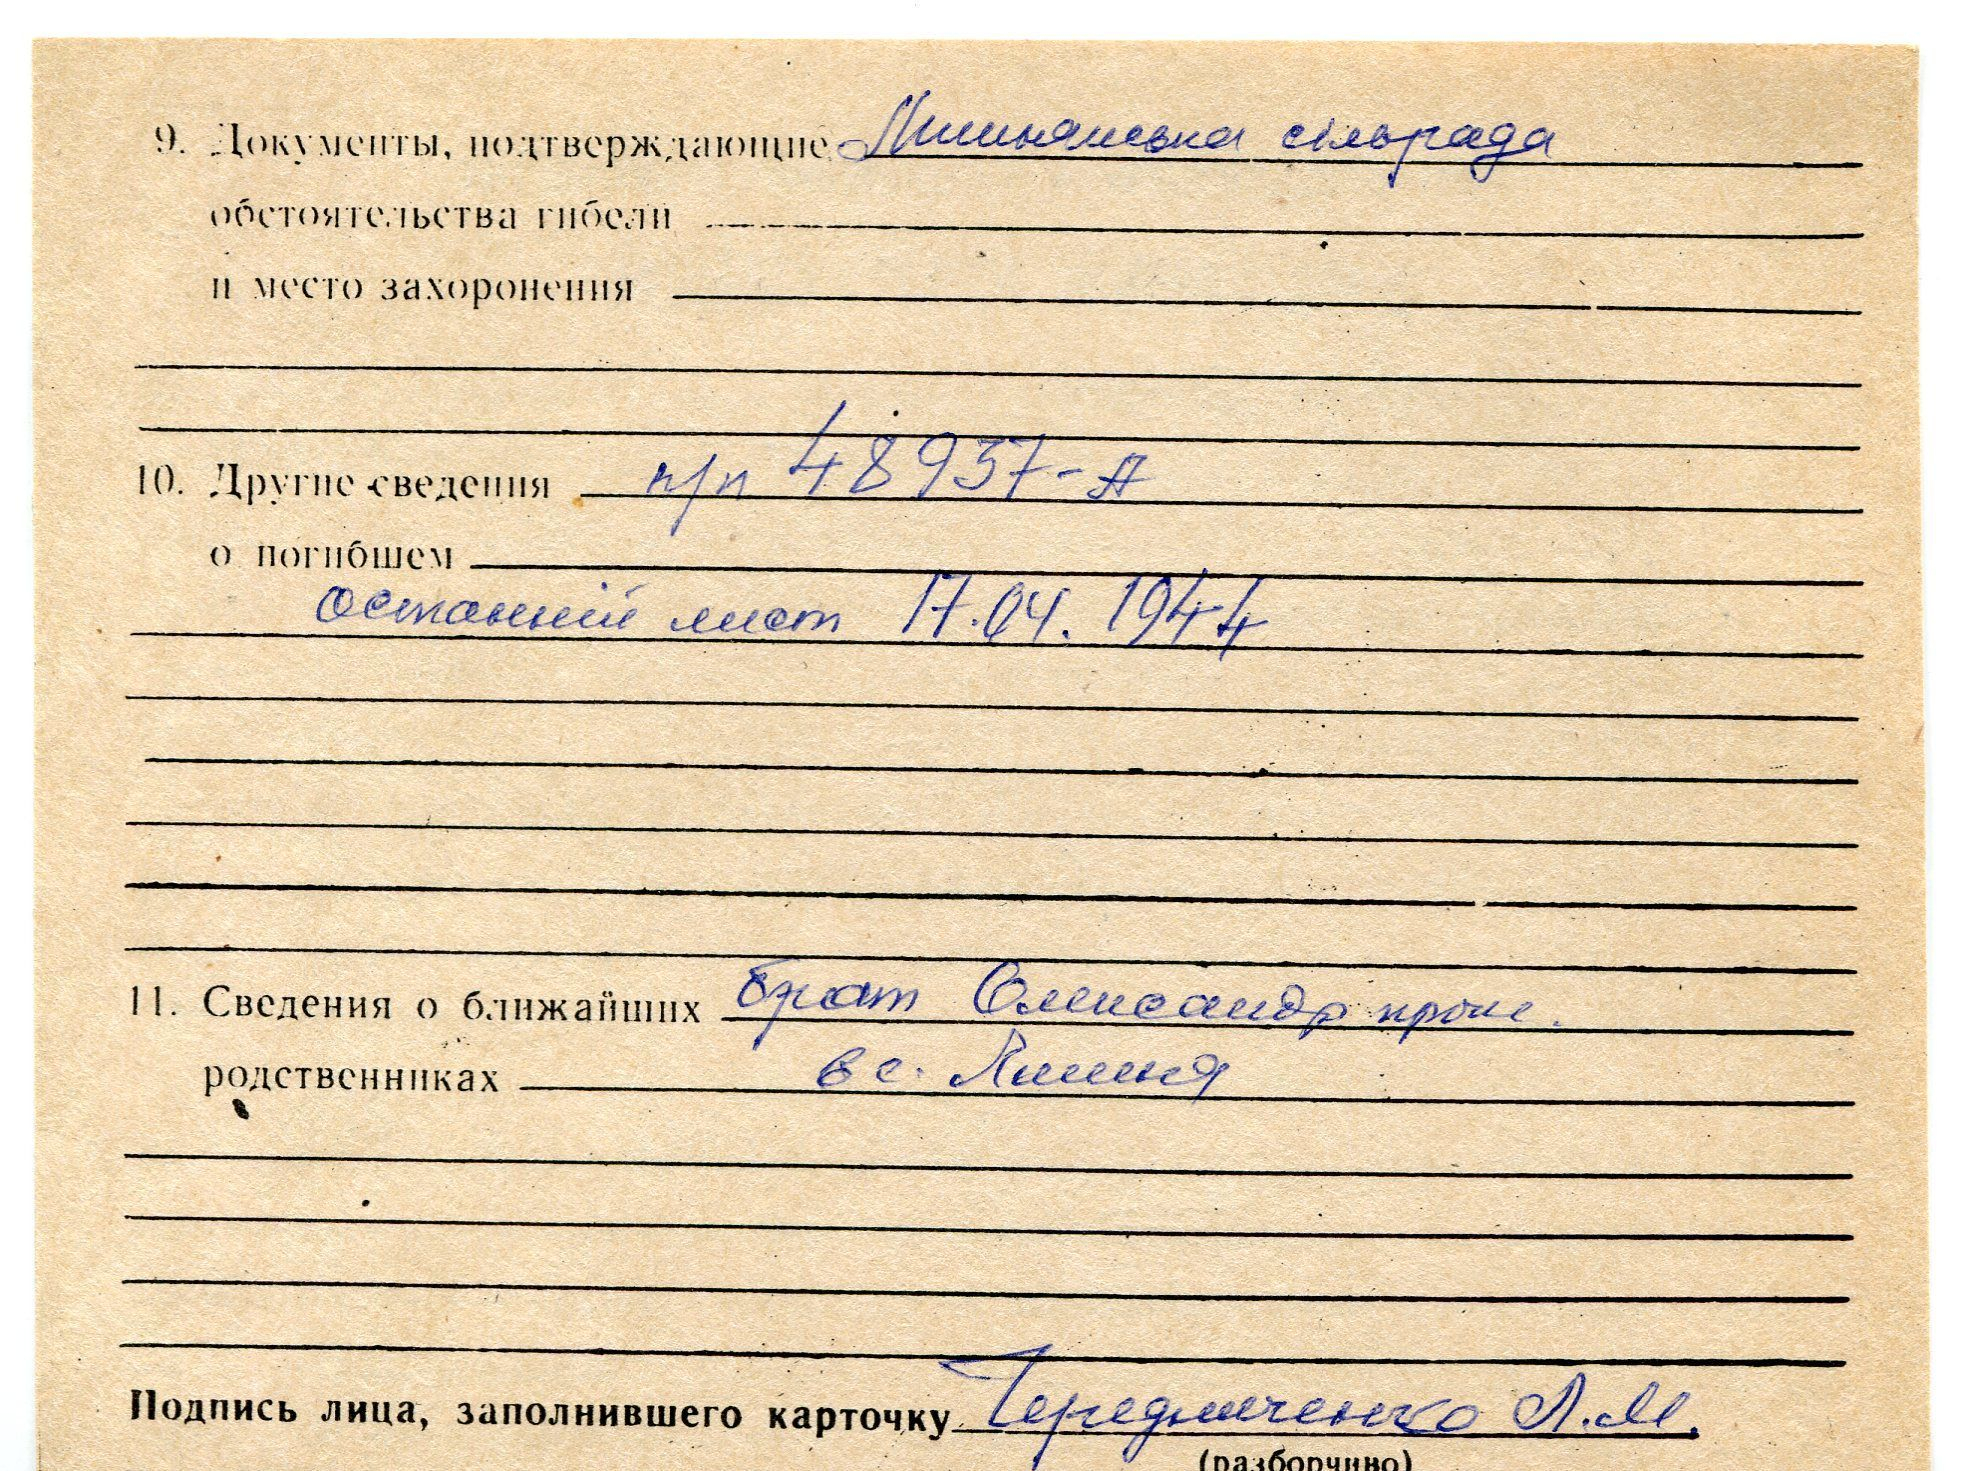 9. Документы, подтверждающие Липнянська сільрада
обстоятельства гибели
и место захоронения
10. Другие сведения п/п 48937-А
о погибшем
останній лист 17.04.1944
11. Сведения о ближайших брат Олександр прож.
родственниках в с.
Подпись лица, заполнившего карточку Чередниченко Л.М.
(разборчиво)